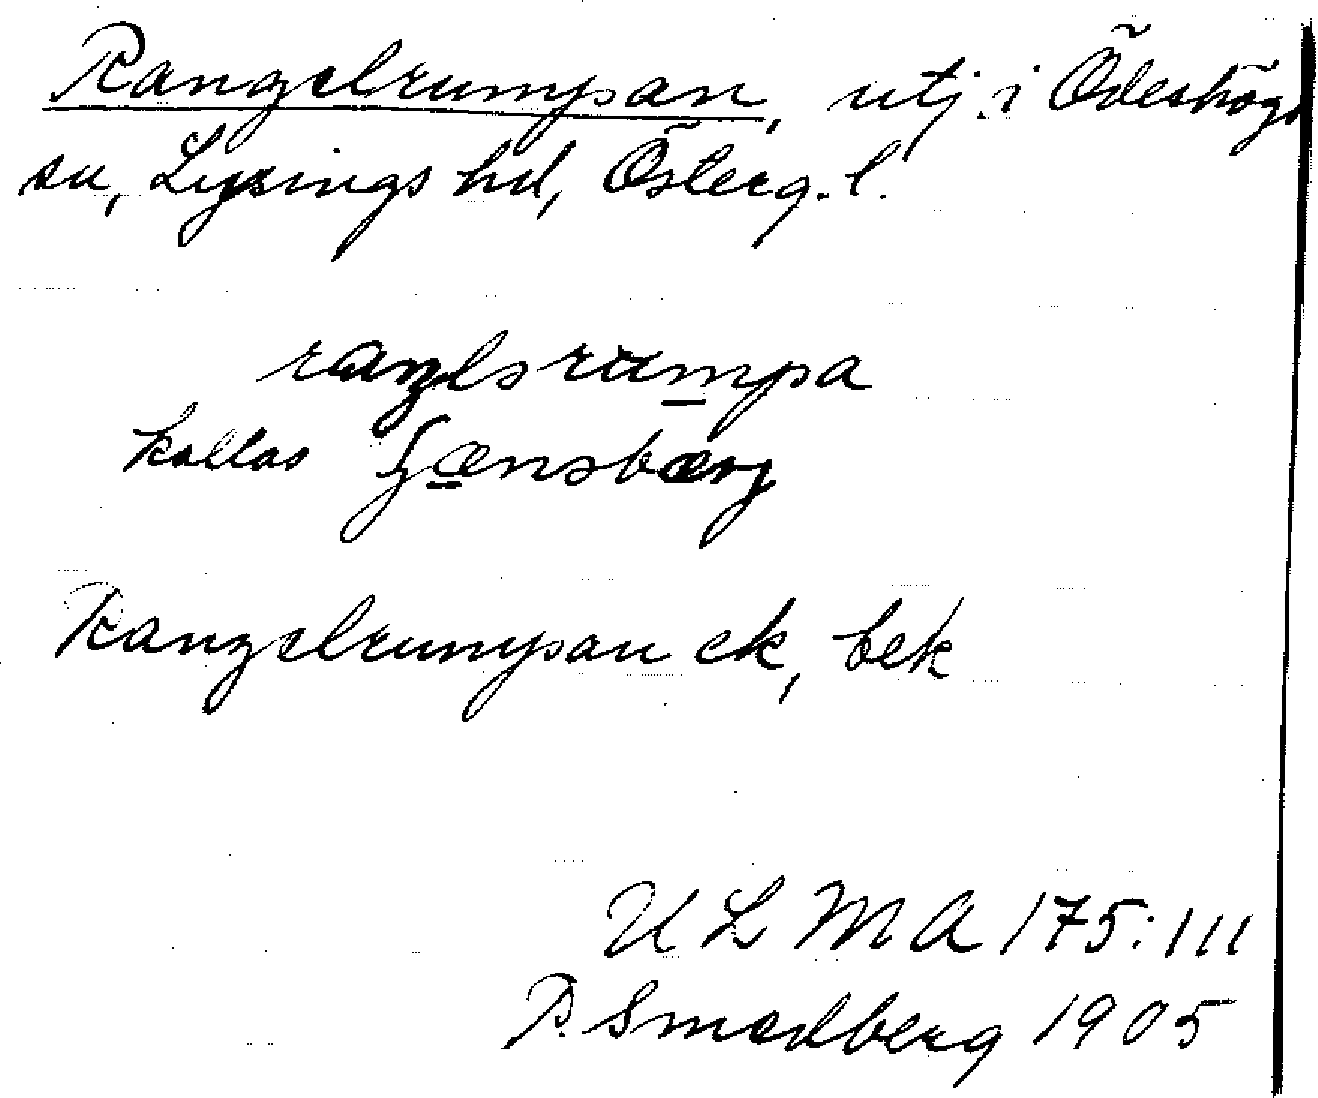 Rangelrumpan, utj. i Ödeshögs
sn, Lysings hd, Österg. l.
raŋlsrumpa
kallas Gænsbærj
Rangelrumpan ek, bek
U L M A 175:111
R. Smedberg 1905